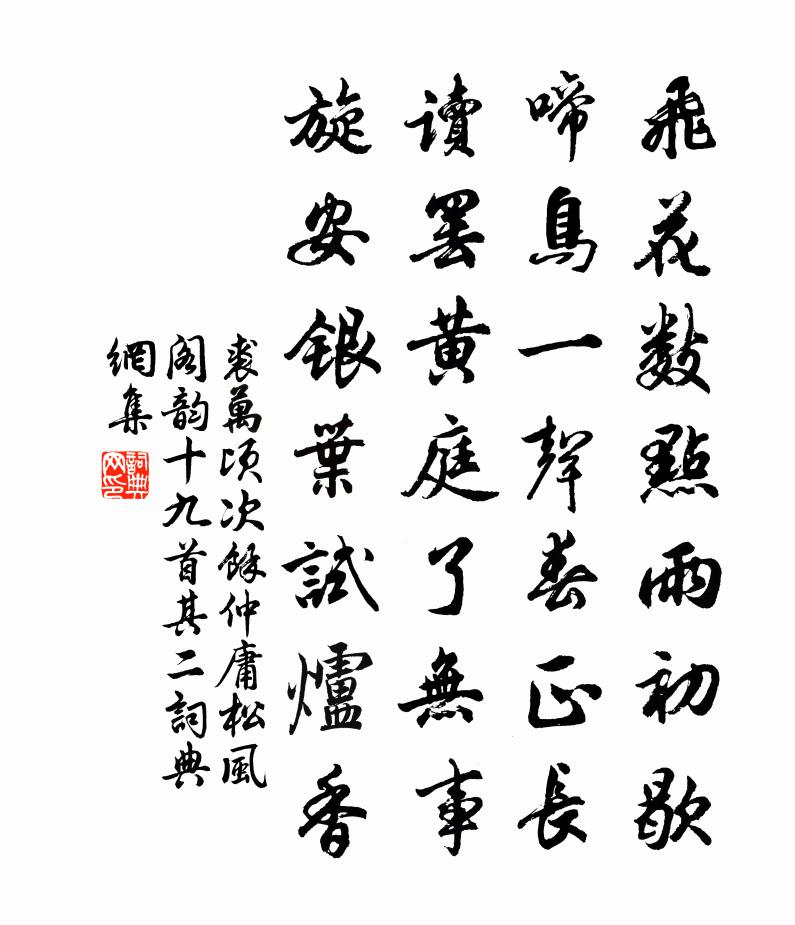 飛花數點雨初歇
啼鳥一聲春正長
讀罷黃庭了無事
旋安銀葉試爐香
裘萬頃次餘仲庸松風
閣韵十九首其二詞典
網集
詞典網印